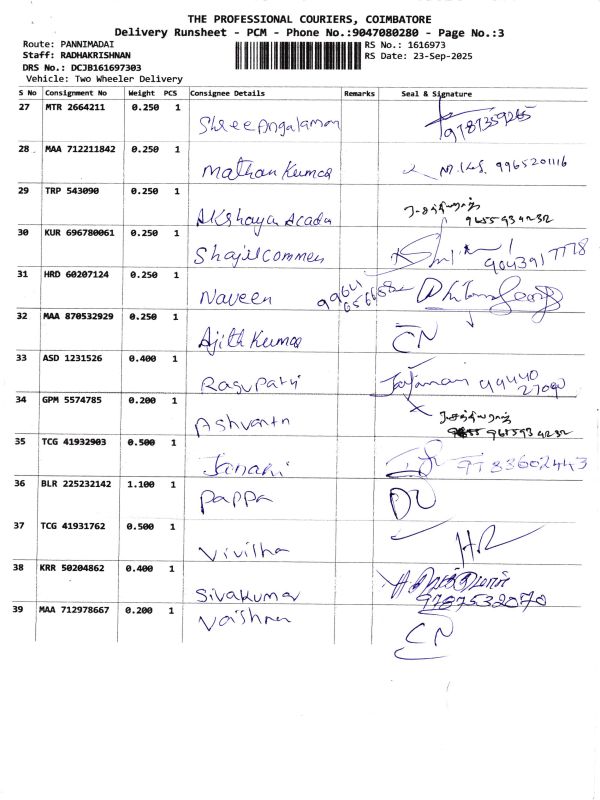 THE PROFESSIONAL COURIERS, COIMBATORE
Delivery Runsheet - PCM - Phone No.:9047080280 - Page No.:3
Route: PANNIMADAI
RS No.: 1616973
Staff: RADHAKRISHNAN
RS Date: 23-Sep-2025
DRS No.: DCJB161697303
Vehicle: Two Wheeler Delivery
S No Consignment No Weight PCS Consignee Details Remarks Seal & Signature
27 MTR 2664211 0.250 1
Shree Angalamman 9787359265
28 MAA 712211842 0.250 1
Mathan Kumar 9965201116
29 TRP 543090 0.250 1
Akshaya Acada 9655934232
30 KUR 696780061 0.250 1
Shajil commen 9043917778
31 HRD 60207124 0.250 1
Naveen 99641 656688
32 MAA 870532929 0.250 1
Ajith Kumar CN
33 ASD 1231526 0.400 1
Ragupathi 99440 27090
34 GPM 5574785 0.200 1
Ashvanth
35 TCG 41932903 0.500 1
Janani 9783602443
36 BLR 225232142 1.100 1
Pappa DL
37 TCG 41931762 0.500 1
Vivitha HR
38 KRR 50204862 0.400 1
Sivakumar 9787532070
39 MAA 712978667 0.200 1
Vaishnav CN